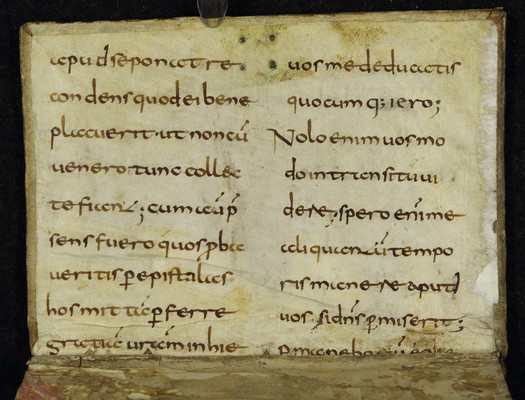 apud se ponat re
condens quod ei bene
placuerit· ut non cū
uenero tunc collec
te fiant; cum aū p̄
sens fuero quos ꝓba
ueritis ꝑ epistolas
hos mittā ꝑferre
gratiā urām in hie
uos me deducatis
quocumq; iero;
Nolo enim uos mo
do in transitu ui
dere; spero enī me
aliquantū tempo
ris manere apud
uos. si dn̄s ꝑmiserit;
Ꝑmanebo aū